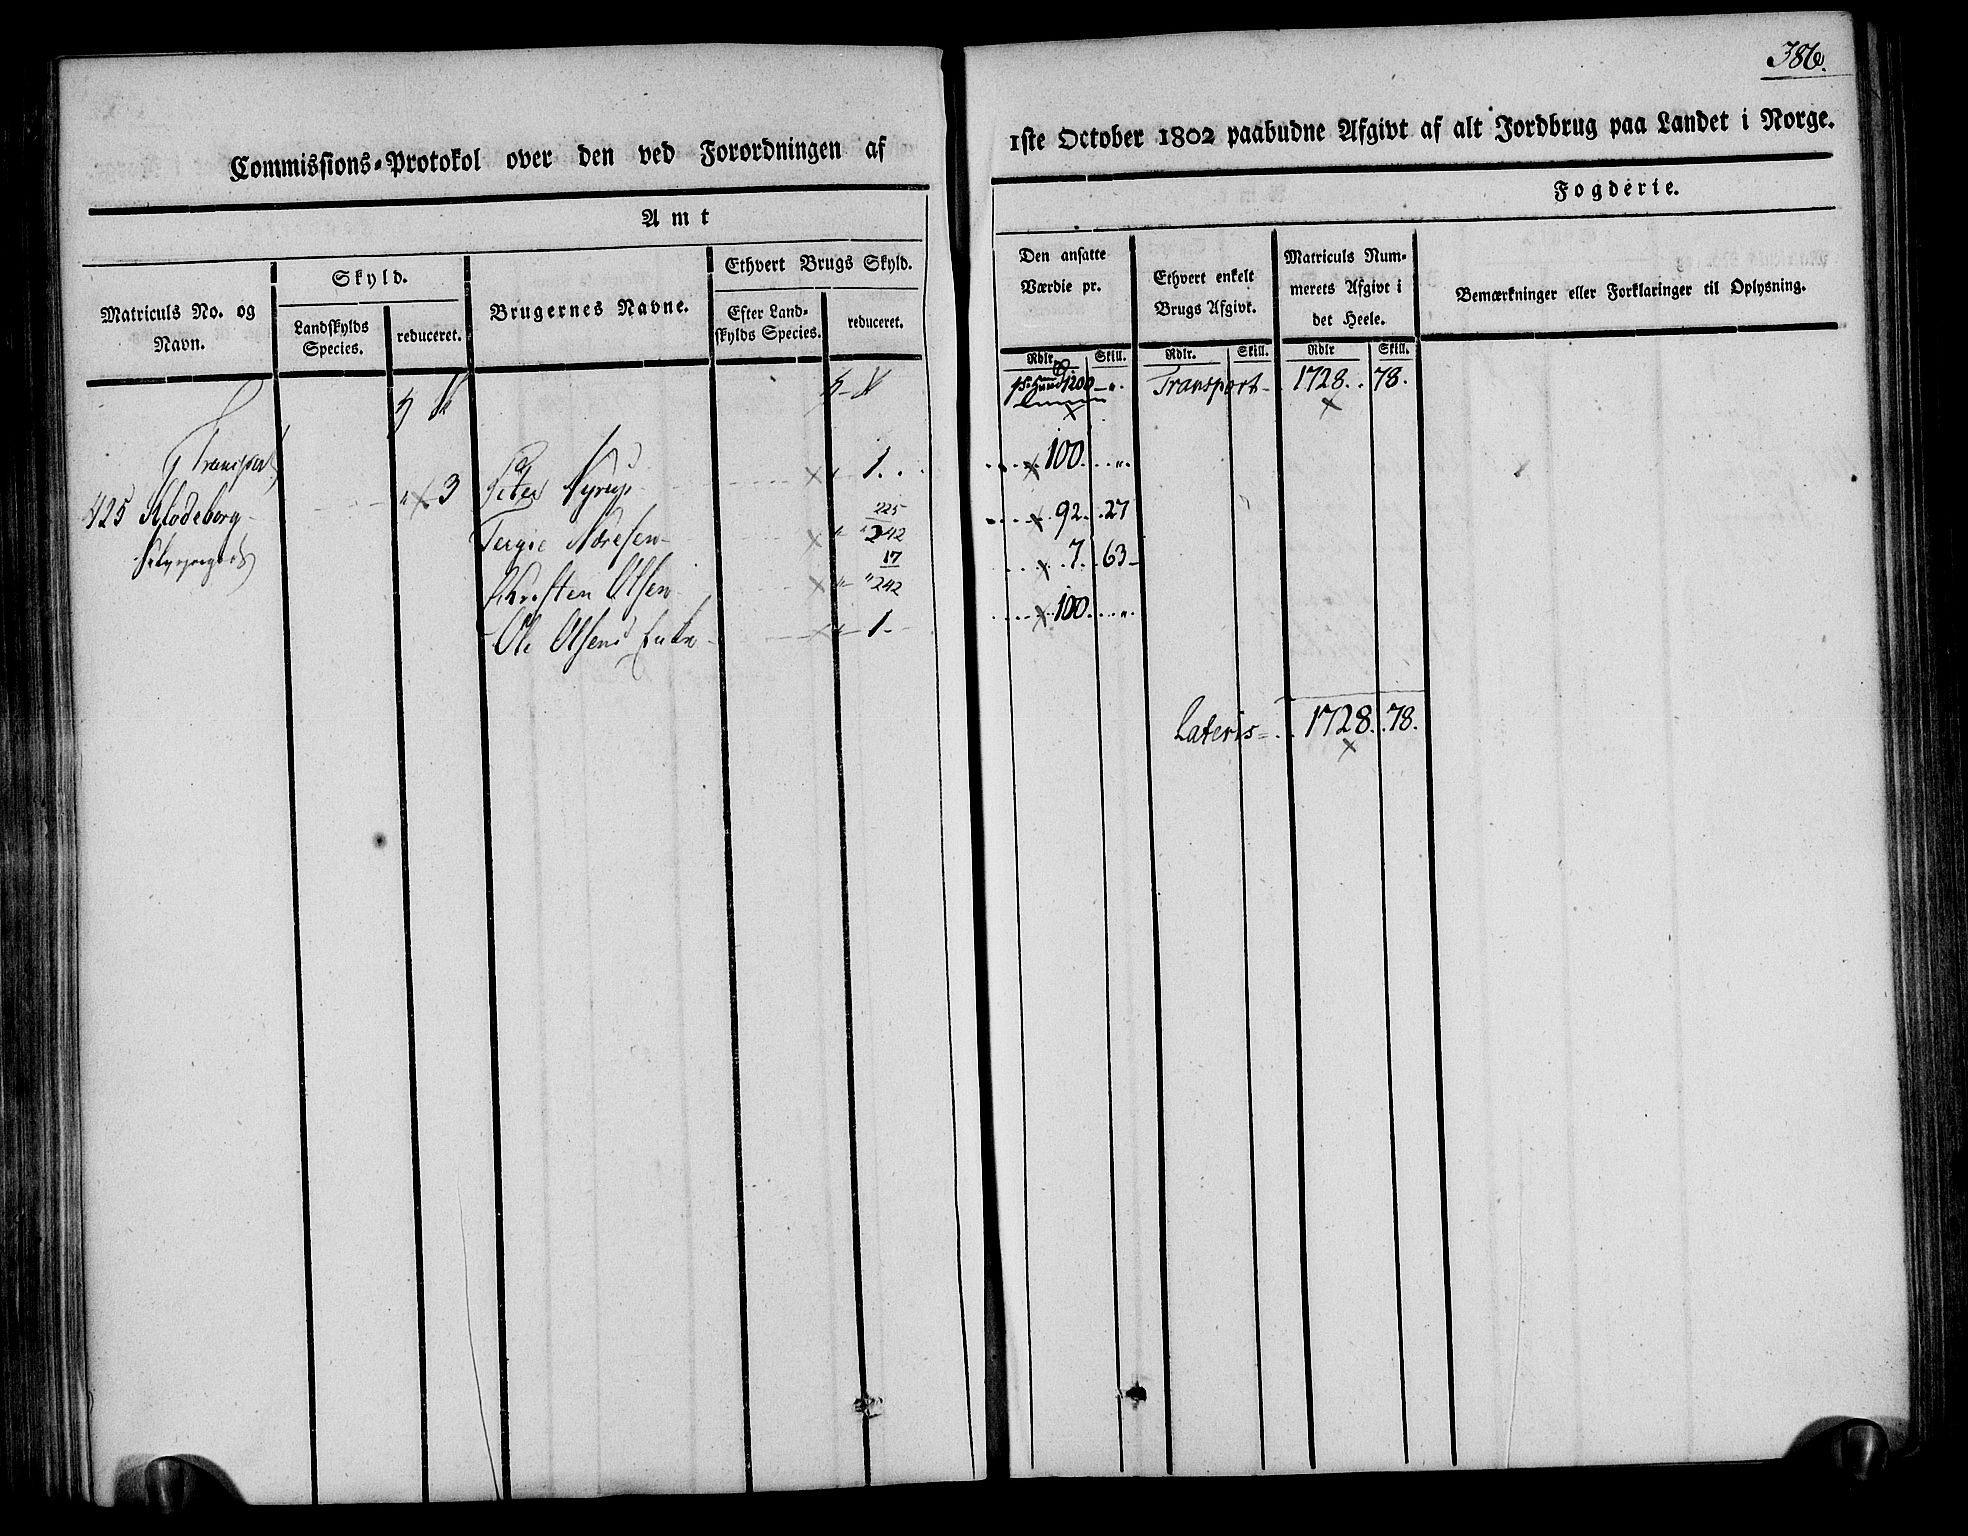 386.
Commissions-Protokol over den ved Forordningen af
1ste October 1802 paabudne Afgivt af alt Jordbrug paa Landet i Norge.
Amt
Fogderie.
Matriculs No. og Navn.
Skyld.
Landskylds Species.
reduceret.
Brugernes Navne.
Ethvert Brugs Skyld.
Efter Landskylds Species.
reduceret.
Den ansatte Værdie pr.
Rdlr.
Skill.
Ethvert enkelt Brugs Afgivt.
Rdlr.
Skill.
Matriculs Nummerets Afgivt i det Heele.
Rdlr
Skill.
Bemærkninger eller Forklaringer til Oplysning.
1200 Transport 1728. 78.
Transport
425 Klodeborg 3 Peter Nyrup 1. 100.
Tergie 225/242 92. 27
Christen Olsen 17/242 7. 63
Ole Olsens Enke 1. 100.
Lateris 1728. 78.